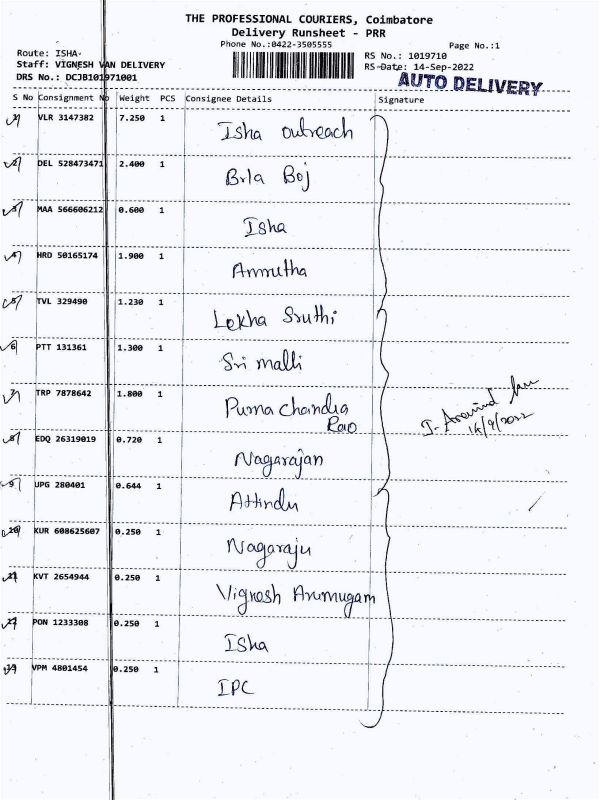 THE PROFESSIONAL COURIERS, Coimbatore
Delivery Runsheet - PRR
Phone No.:0422-3505555 Page No.:1
Route: ISHA
Staff: VIGNESH VAN DELIVERY
DRS No.: DCJB101971001
RS No.: 1019710
RS-Date: 14-Sep-2022
AUTO DELIVERY
S No Consignment No Weight PCS Consignee Details Signature
1 VLR 3147382 7.250 1 Isha outreach
2 DEL 528473471 2.400 1 Brla Boj
3 MAA 566606212 0.600 1 Isha
4 HRD 50165174 1.900 1 Ammutha
5 TVL 329490 1.230 1 Lekha Sruthi
6 PTT 131361 1.300 1 Sri malli
7 TRP 7878642 1.800 1 Purna Chandra
Rao
J. Aravind
14/9/2022
8 EDQ 26319019 0.720 1 Nagarajan
9 UPG 280401 0.644 1 Attindu
10 KUR 608625607 0.250 1 Nagaraju
11 KVT 2654944 0.250 1 Vignesh Arumugam
12 PON 1233308 0.250 1 Isha
13 VPM 4801454 0.250 1 IPC